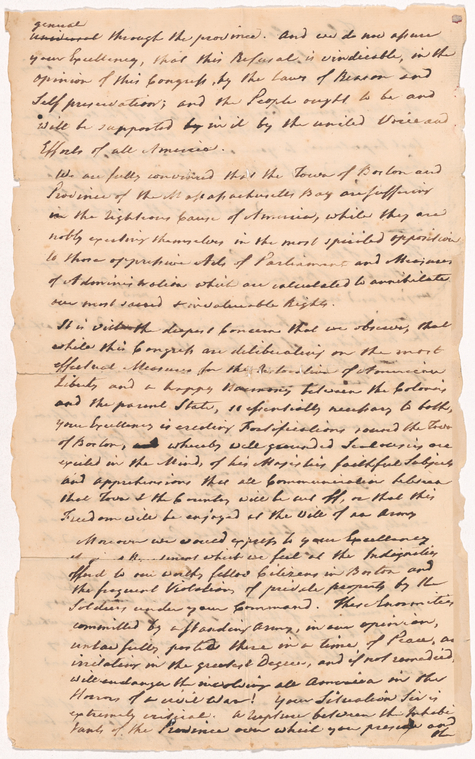 general
universal through the province. And we do now assure
your Excellency, that this Refusal is vindicable, in the
opinion of this Congress, by the Laws of Reason and
Self preservation; and the People ought to be and
will be supported in it by the united Voice and
Efforts of all America.
We are fully convinced that the Town of Boston and
Province of the Massachusetts Bay are suffering
in the righteous Cause of America, while they are
nobly exerting themselves in the most spirited opposition
to those oppressive Acts of Parliament and Measures
of Administration which are calculated to annihilate
our most sacred & invaluable Rights.
It is with the deepest Concern that we observe, that
while this Congress are deliberating on the most
effectual Measures for the Restoration of American
Liberty and a happy Harmony between the Colonies
and the parent State, so essentially necessary to both,
your Excellency is erecting Fortifications round the Town
of Boston, whereby well grounded Jealousies are
excited in the Minds of his Majesties faithful Subjects
and apprehensions that all Communication between
that Town & the Country will be cut off, or that this
Freedom will be enjoyed at the Will of an Army
Moreover we would express to your Excellency
which we feel at the Indignities
offered to our worthy fellow Citizens in Boston and
the frequent Violations of private property by the
Soldiers under your Command. These Enormities
committed by a standing Army, in our opinion,
unlawfully posted there in a time of Peace, are
irritating in the greatest Degree, and if not remedied,
will endanger the involving all America in the
Horrors of a civil War! Your Situation Sir is
extremely critical. A Rupture between the Inhabi
tants of the Province over which you preside and
the